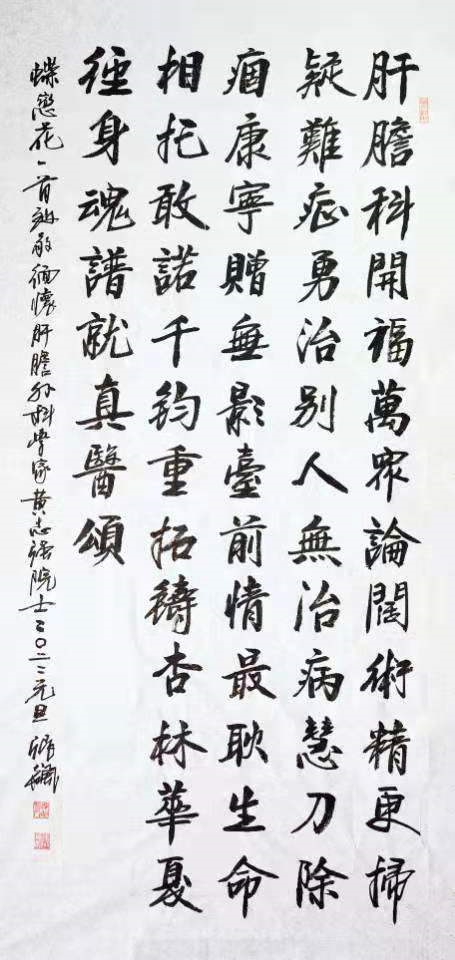 肝膽科開福萬眾論闊術精更掃
疑難症勇治別人無治病慧刀除
痼康寧贈無影臺前情最耿生命
相托敢諾千鈞重拓鑄杏林華夏
徑身魂譜就真醫頌
蝶戀花一首致敬緬懷肝膽外科學家黃志强院士二〇二二元旦